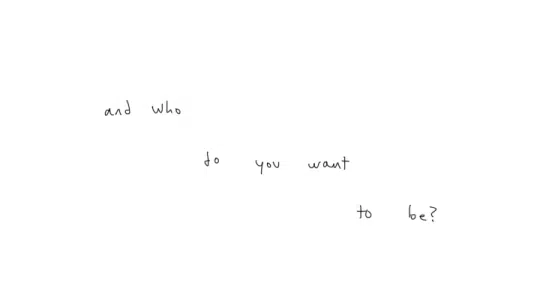 and who
do you want
to be?